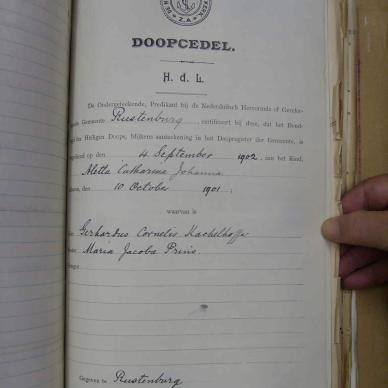 DOOPCEDEL.
H. d. L.
De Ondergeteekende, Predikant bij de Nederduitsch Hervormde of Gerefor-
Gemeente Rustenburg, certificeert bij deze, dat het Bond-
Heiligen Doops, blijkens aanteekening in het Doopregister der Gemeente, is
op den 4 September 1902, aan het Kind,
Aletta Catharina Johanna
den 10 October 1901;
waarvan is
Gerhardus Cornelis Kachelhoffer
Maria Jacoba Prins.
Gegeven te Rustenburg